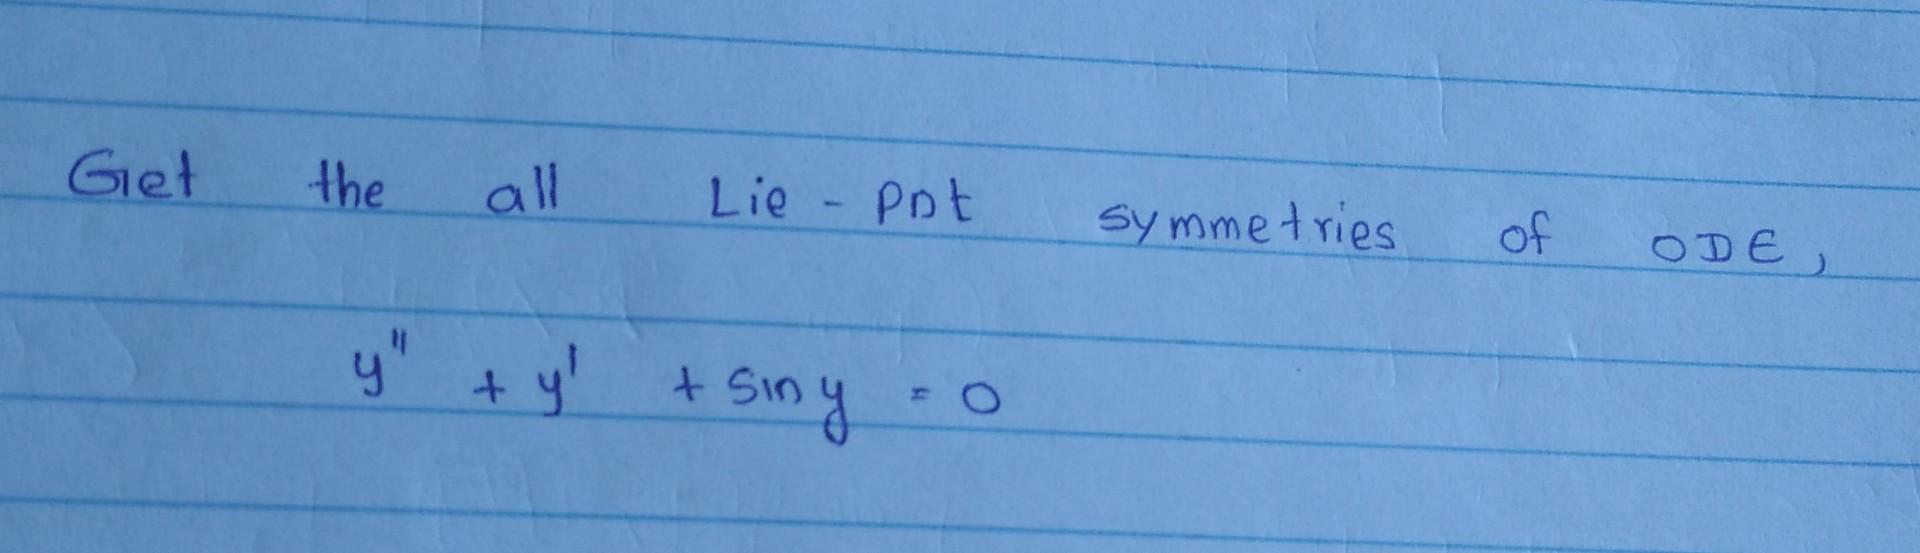 Get the all Lie - pnt symmetries of ODE,
y" + y' + sin y = 0